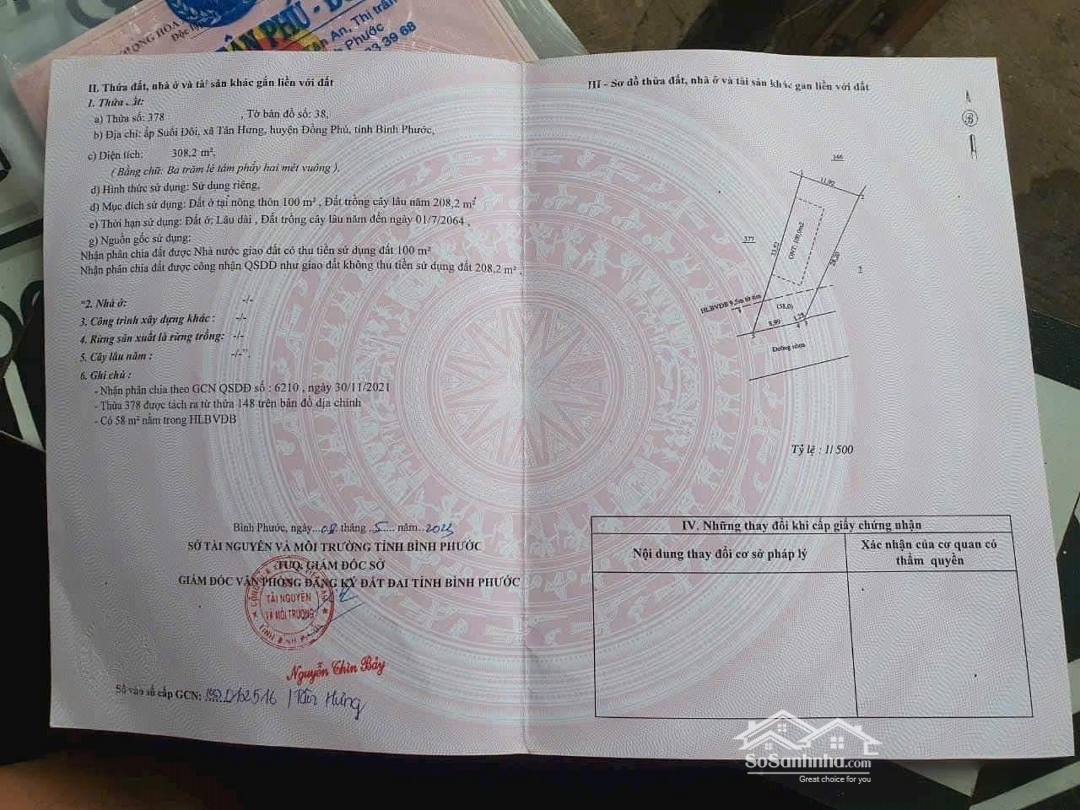 PHÚ - 
33 39 68
II. Thửa đất, nhà ở và tài sản khác gắn liền với đất
1. Thửa đất:
a) Thửa số: 378 , Tờ bản đồ số: 38,
b) Địa chỉ: ấp Suối Đôi, xã Tân Hưng, huyện Đồng Phú, tỉnh Bình Phước,
c) Diện tích: 308,2 m²,
( Bằng chữ: Ba trăm lẻ tám phẩy hai mét vuông ).
d) Hình thức sử dụng: Sử dụng riêng,
đ) Mục đích sử dụng: Đất ở tại nông thôn 100 m² , Đất trồng cây lâu năm 208,2 m²
e) Thời hạn sử dụng: Đất ở: Lâu dài , Đất trồng cây lâu năm đến ngày 01/7/2064 ,
g) Nguồn gốc sử dụng:
Nhận phân chia đất được Nhà nước giao đất có thu tiền sử dụng đất 100 m²
Nhận phân chia đất được công nhận QSDĐ như giao đất không thu tiền sử dụng đất 208,2 m² .
"2. Nhà ở: -/-
3. Công trình xây dựng khác : -/-
4. Rừng sản xuất là rừng trồng: -/-
5. Cây lâu năm : -/-".
6. Ghi chú :
- Nhận phân chia theo GCN QSDĐ số : 6210 , ngày 30/11/2021
- Thửa 378 được tách ra từ thửa 148 trên bản đồ địa chính
- Có 58 m² nằm trong HLBVĐB
Bình Phước, ngày...08 tháng ...5.... năm...2023
SỞ TÀI NGUYÊN VÀ MÔI TRƯỜNG TỈNH BÌNH PHƯỚC
TUQ. GIÁM ĐỐC SỞ
GIÁM ĐỐC VĂN PHÒNG ĐĂNG KÝ ĐẤT ĐAI TỈNH BÌNH PHƯỚC
TÀI NGUYÊN
VÀ MÔI TRƯỜNG
Nguyễn Chín Bảy
Số vào sổ cấp GCN: 02516 / Tân Hưng
III - Sơ đồ thửa đất, nhà ở và tài sản khác gắn liền với đất
B
11,90
377
33,52
ONT: 100,0m2
28,20
HLBVĐB 9,5m từ tim
(58,0)
8,99
3,28
Đường nhựa
Tỷ lệ : 1/ 500
IV. Những thay đổi khi cấp giấy chứng nhận
Nội dung thay đổi cơ sở pháp lý
Xác nhận của cơ quan có
thẩm quyền
SoSanhnha.com
Great choice for you